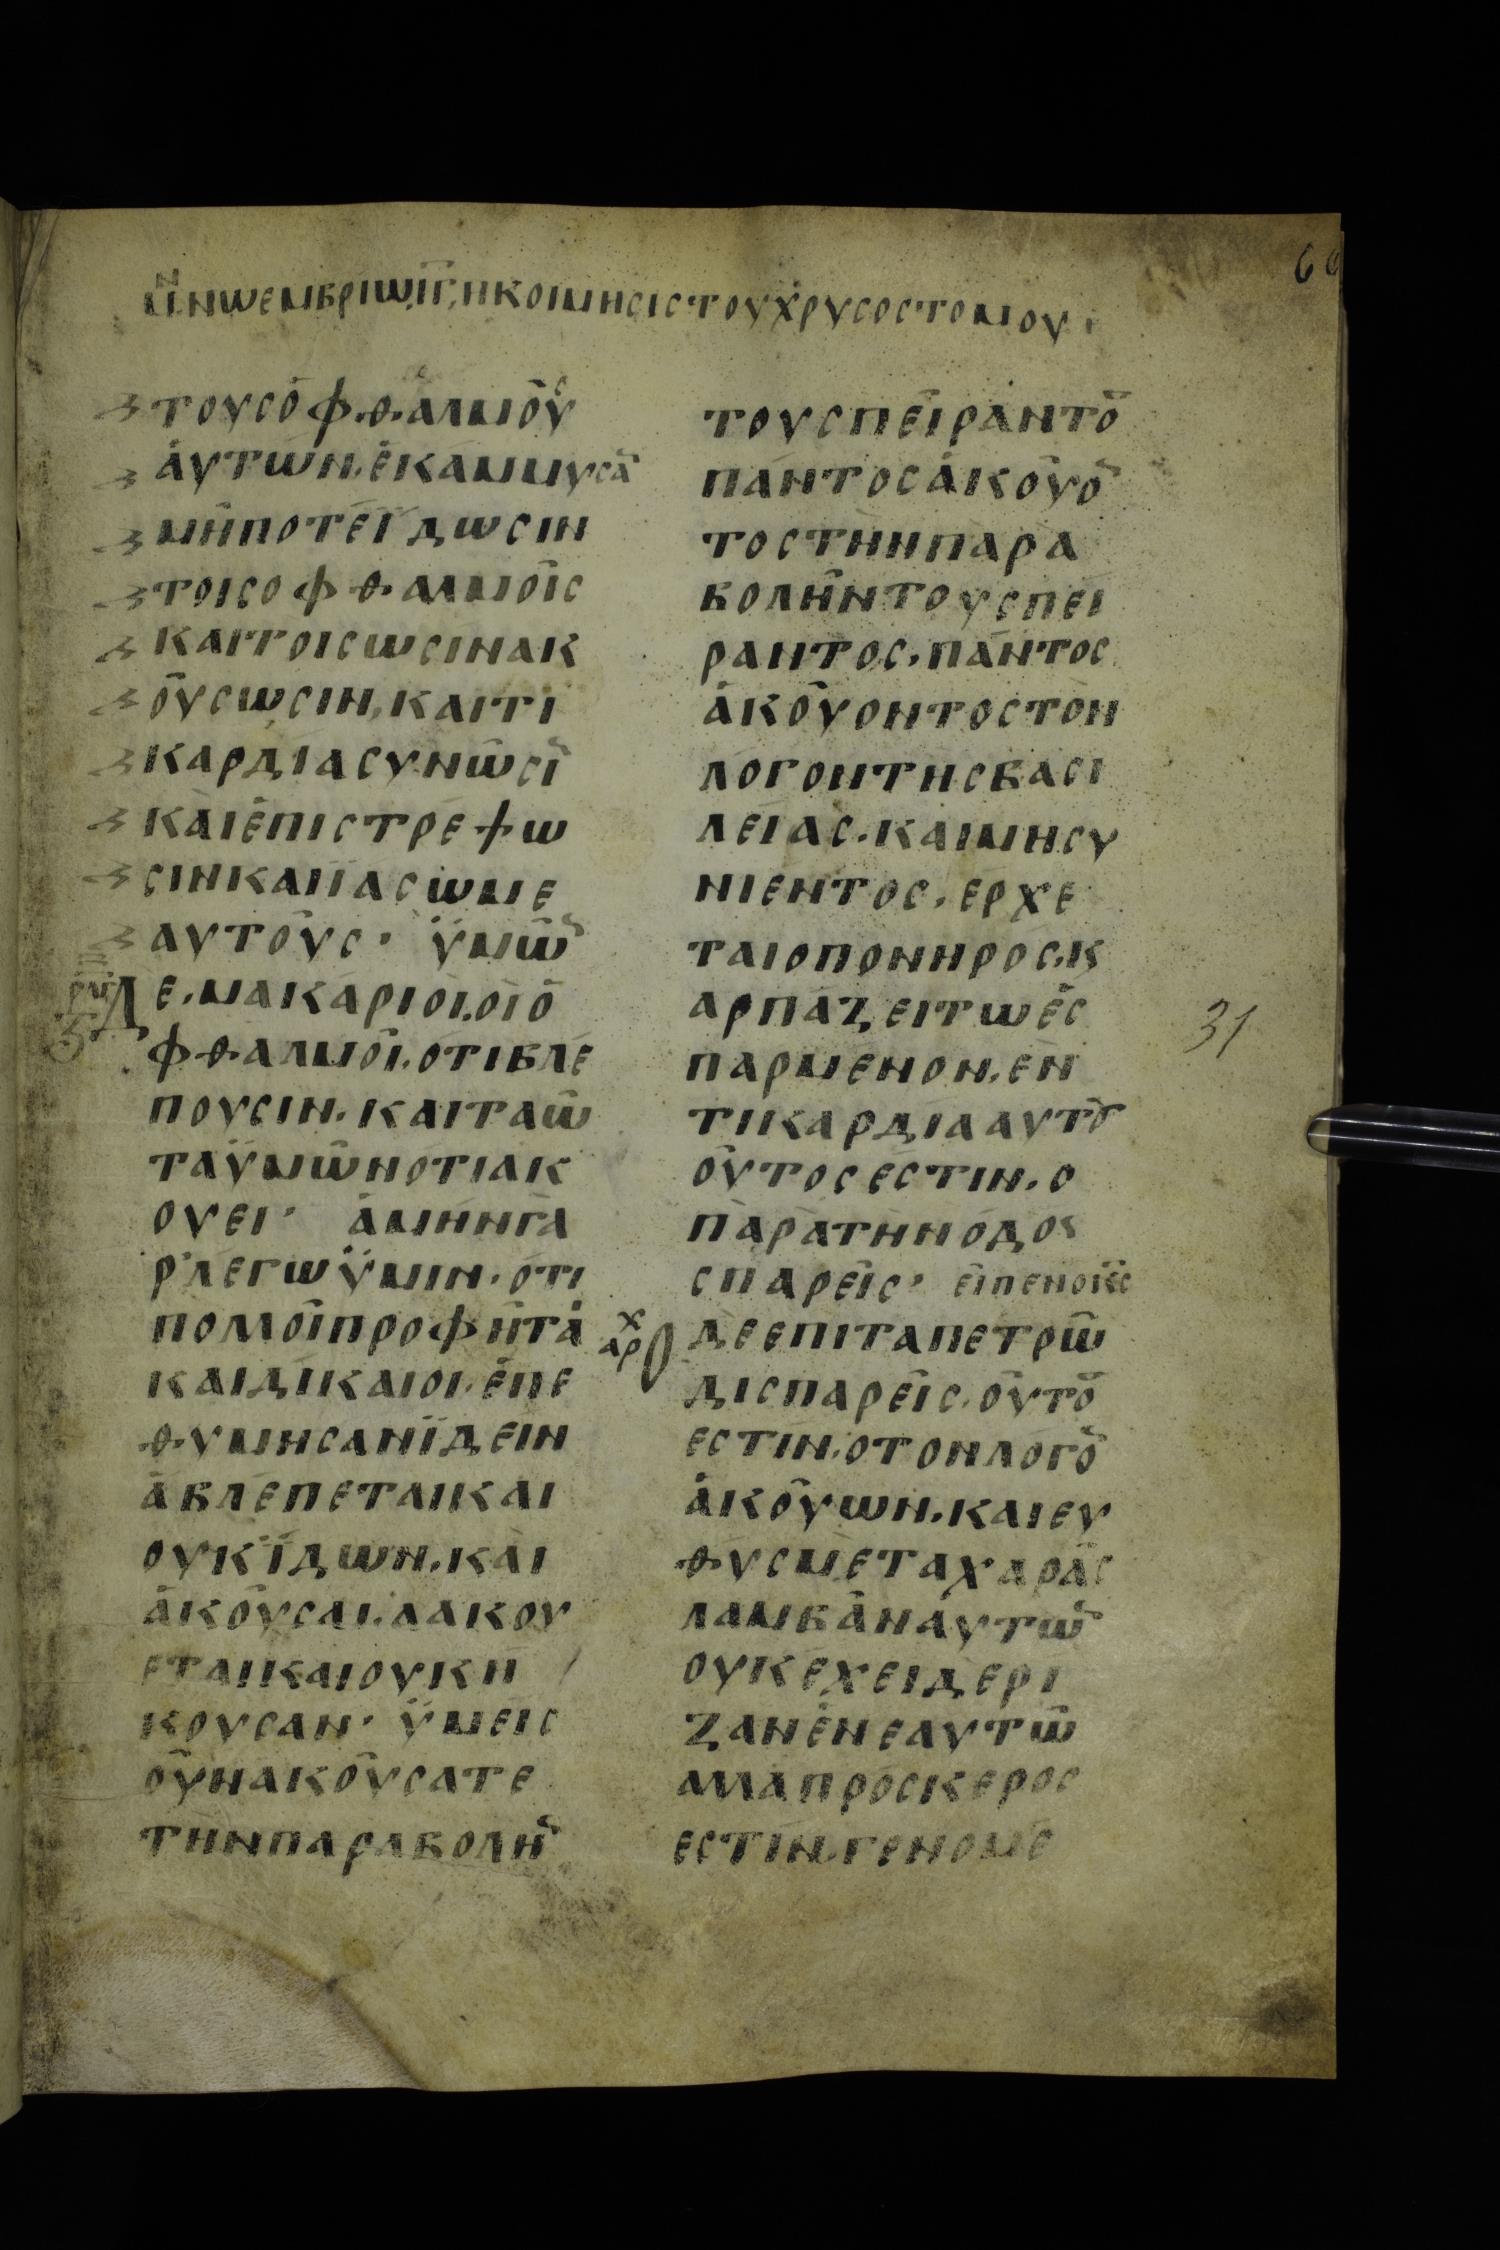 66
μηνωεμβριω,ιγ,ηκοιμησιςτουχρυσοςτομου
τουσὁφθαλμοὺς
ἀυτων.ἐκαμμυσᾱ
μήποτεϊδωσιν
τοισοφθαλμοῖς
καιτοισωσινακ
οῦσωσιν,καιτι
καρδιασυνῶσῑ
καιἐπιστρεψω
σινκαιϊασωμε
αυτοῦς· ϋμῶ̄
ρμ̅
Δε.μακαριοι.οιὁ
φθαλμοῖ.οτιβλε
πουσιν.καιταῶ
ταϋμῶνοτιακ
ουει· ἀμηνγα
ρλεγωϋμιν·οτι
πολλοῖπροφῆτἀ
καιδικαιοι·ἐπε
θυμησανϊδειν
ἀβλεπεταικαι
ουκϊδων.και
ἀκοῦσαι.αακου
εταικαιουκη
κουσαν· ϋμεις
οῦνακοῦσατε
τηνπαραβολη̄
τουσπεῖραντο̄
παντοσἀκοῦο̄
τοστηνπαρα
βολῆντουσπει
ραντος,παντος
ἀκοῦοντοστον
λογοντησβασι
λειας.καιμησυ
νιεντος,ερχε
ταιοπονηρος,κ
αρπαζειτωἐς
31
παρμενον.εν
τικαρδιααυτο
οῦτοσεστιν.ο
παρατηνοδος
σπαρεῖς· εῖπενοῑς̄
χ
αρ Ο δεεπιταπετρῶ
δισπαρεῖς.οῦτο̄
εστιν.οτονλογο̄
ἀκοῦων.καιευ
θυσμεταχαρᾶς
λαμβᾶναυτω̄
ουκεχειδερι
ζανἐνεαυτῶ
αλλαπροσκερος
εστιν.γενομε